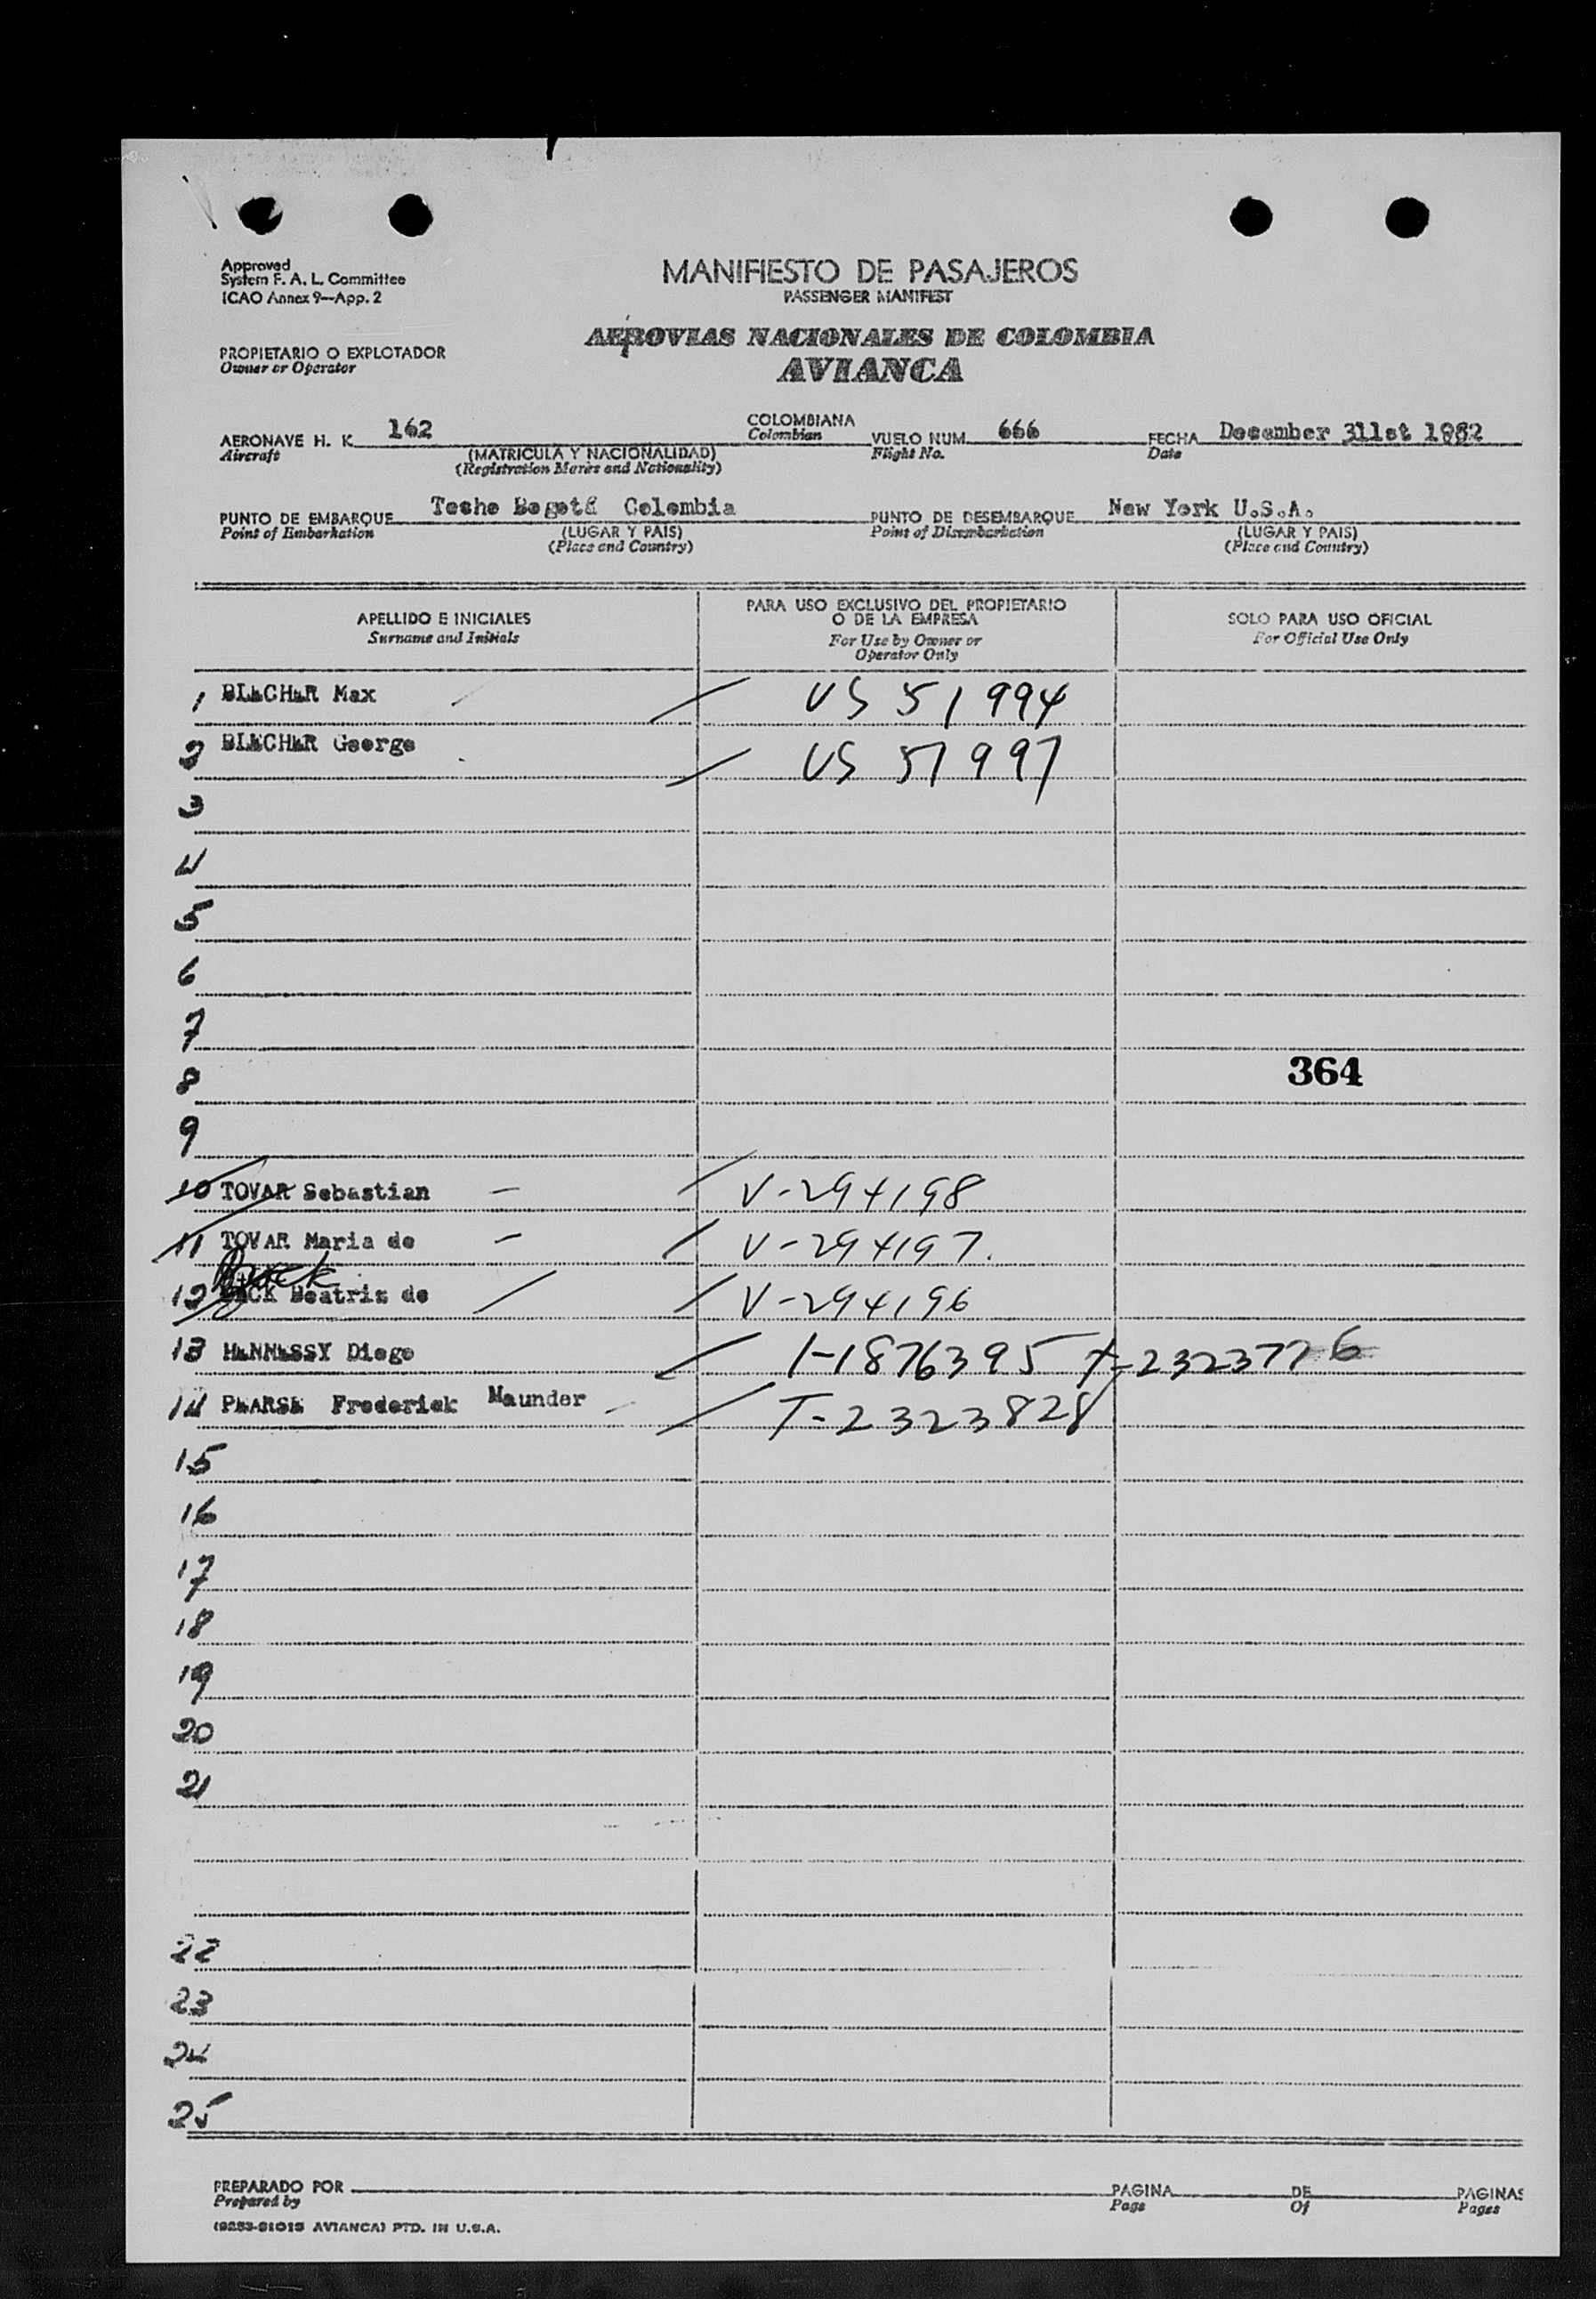 Approved
System F. A. L. Committee
ICAO Annex 9—App. 2
MANIFIESTO DE PASAJEROS
PASSENGER MANIFEST
AEROVIAS NACIONALES DE COLOMBIA
AVIANCA
PROPIETARIO O EXPLOTADOR
Owner or Operator
AERONAVE H. K. 162 COLOMBIANA VUELO NUM. 666 FECHA December 311st 1962
Aircraft (MATRICULA Y NACIONALIDAD) Colombian Flight No. Date
(Registration Marks and Nationality)
PUNTO DE EMBARQUE Techo Bogotá Colombia PUNTO DE DESEMBARQUE New York U.S.A.
Point of Embarkation (LUGAR Y PAIS) Point of Disembarkation (LUGAR Y PAIS)
(Place and Country) (Place and Country)
APELLIDO E INICIALES PARA USO EXCLUSIVO DEL PROPIETARIO O DE LA EMPRESA SOLO PARA USO OFICIAL
Surname and Initials For Use by Owner or Operator Only For Official Use Only
1 BLECHER Max US 51994
2 BLECHER George US 51997
3
4
5
6
7
8 364
9
10 TOVAR Sebastian V-294198
11 TOVAR Maria de V-294197.
12 Beatriz de V-294196
13 HENNESSY Diego 1-1876395 T-2323776
14 PEARSE Frederick Maunder T-2323828
15
16
17
18
19
20
21
22
23
24
25
PREPARADO POR PAGINA DE PAGINAS
Prepared by Page Of Pages
(9253-81015 AVIANCA) PTD. IN U.S.A.